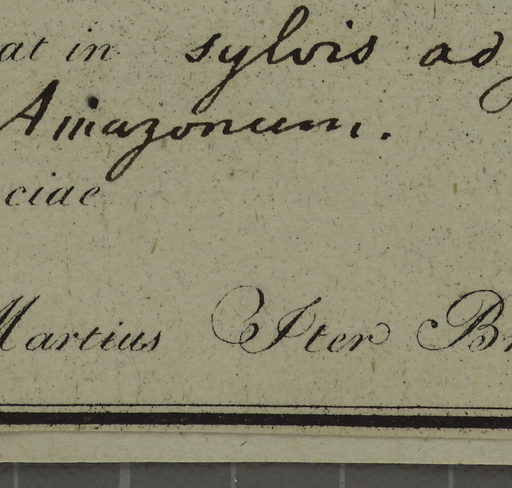 at in sylvis ad
Amazonum.
ciae
Martius Iter Br